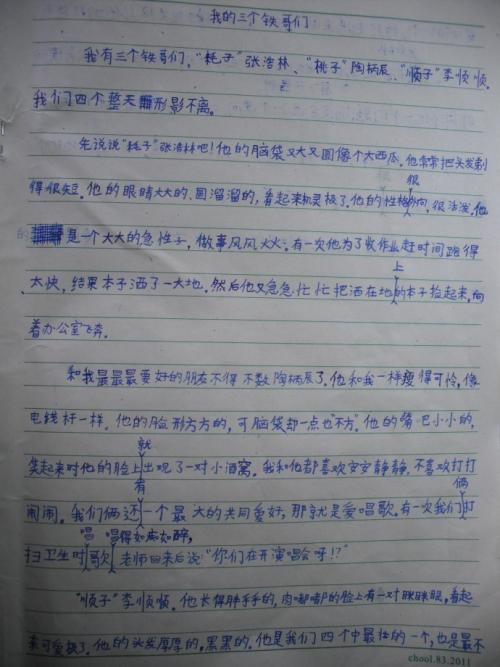 我的三个铁哥们
我有三个铁哥们,“耗子”张浩林、“桃子”陶柄辰、“顺子”李顺顺.
我们四个整天形影不离。
先说说“耗子”张浩林吧!他的脑袋又大又圆像个大西瓜.他常常把头发剃
得很短.他的眼睛大大的、圆溜溜的,看起来机灵极了.他的性格很外向,很活泼.他
是一个大大的急性子,做事风风火火.有一次他为了收作业赶时间跑得
太快,结果本子洒了一大地.然后他又急急忙忙把洒在地上的本子捡起来,向
着办公室飞奔.
和我最最最要好的朋友不得不数陶柄辰了.他和我一样瘦得可怜,像
电线杆一样.他的脸形方方的,可脑袋却一点也“不方”.他的嘴巴小小的,
笑起来时他的脸上就出现了一对小酒窝.我和他都喜欢安安静静,不喜欢打打
闹闹。我们俩还有一个最大的共同爱好,那就是爱唱歌.有一次我们俩打
扫卫生时唱歌唱得如痴如醉,老师回来后说:“你们在开演唱会呀!?”
“顺子”李顺顺.他长得胖乎乎的,肉嘟嘟的脸上有一对眯眯眼,看起
来可爱极了.他的头发厚厚的,黑黑的.他是我们四个中最壮的一个,也是最不
cbool.83.2011